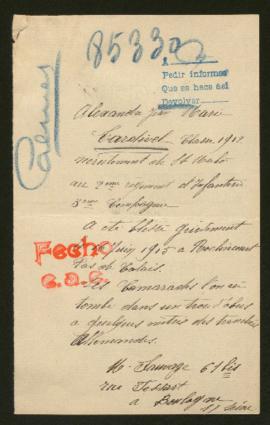 85330
Pedir informes
Que se hace así
Devolver
Alexandre Jean Marie
Cardivel Classe 1917
recrutement de St Malo
au regiment d'Infanterie
Compagnie
A été blessé grièvement
Juin 1915 a
Pas de Calais.
Ses Camarades l'on vu
tombé dans un trou d'obus
a quelques mètres des tranchées
Allemandes.
Fecho
C.a.S.
Mr Sauvage 61 bis
rue
a Boulogne
s/ Seine